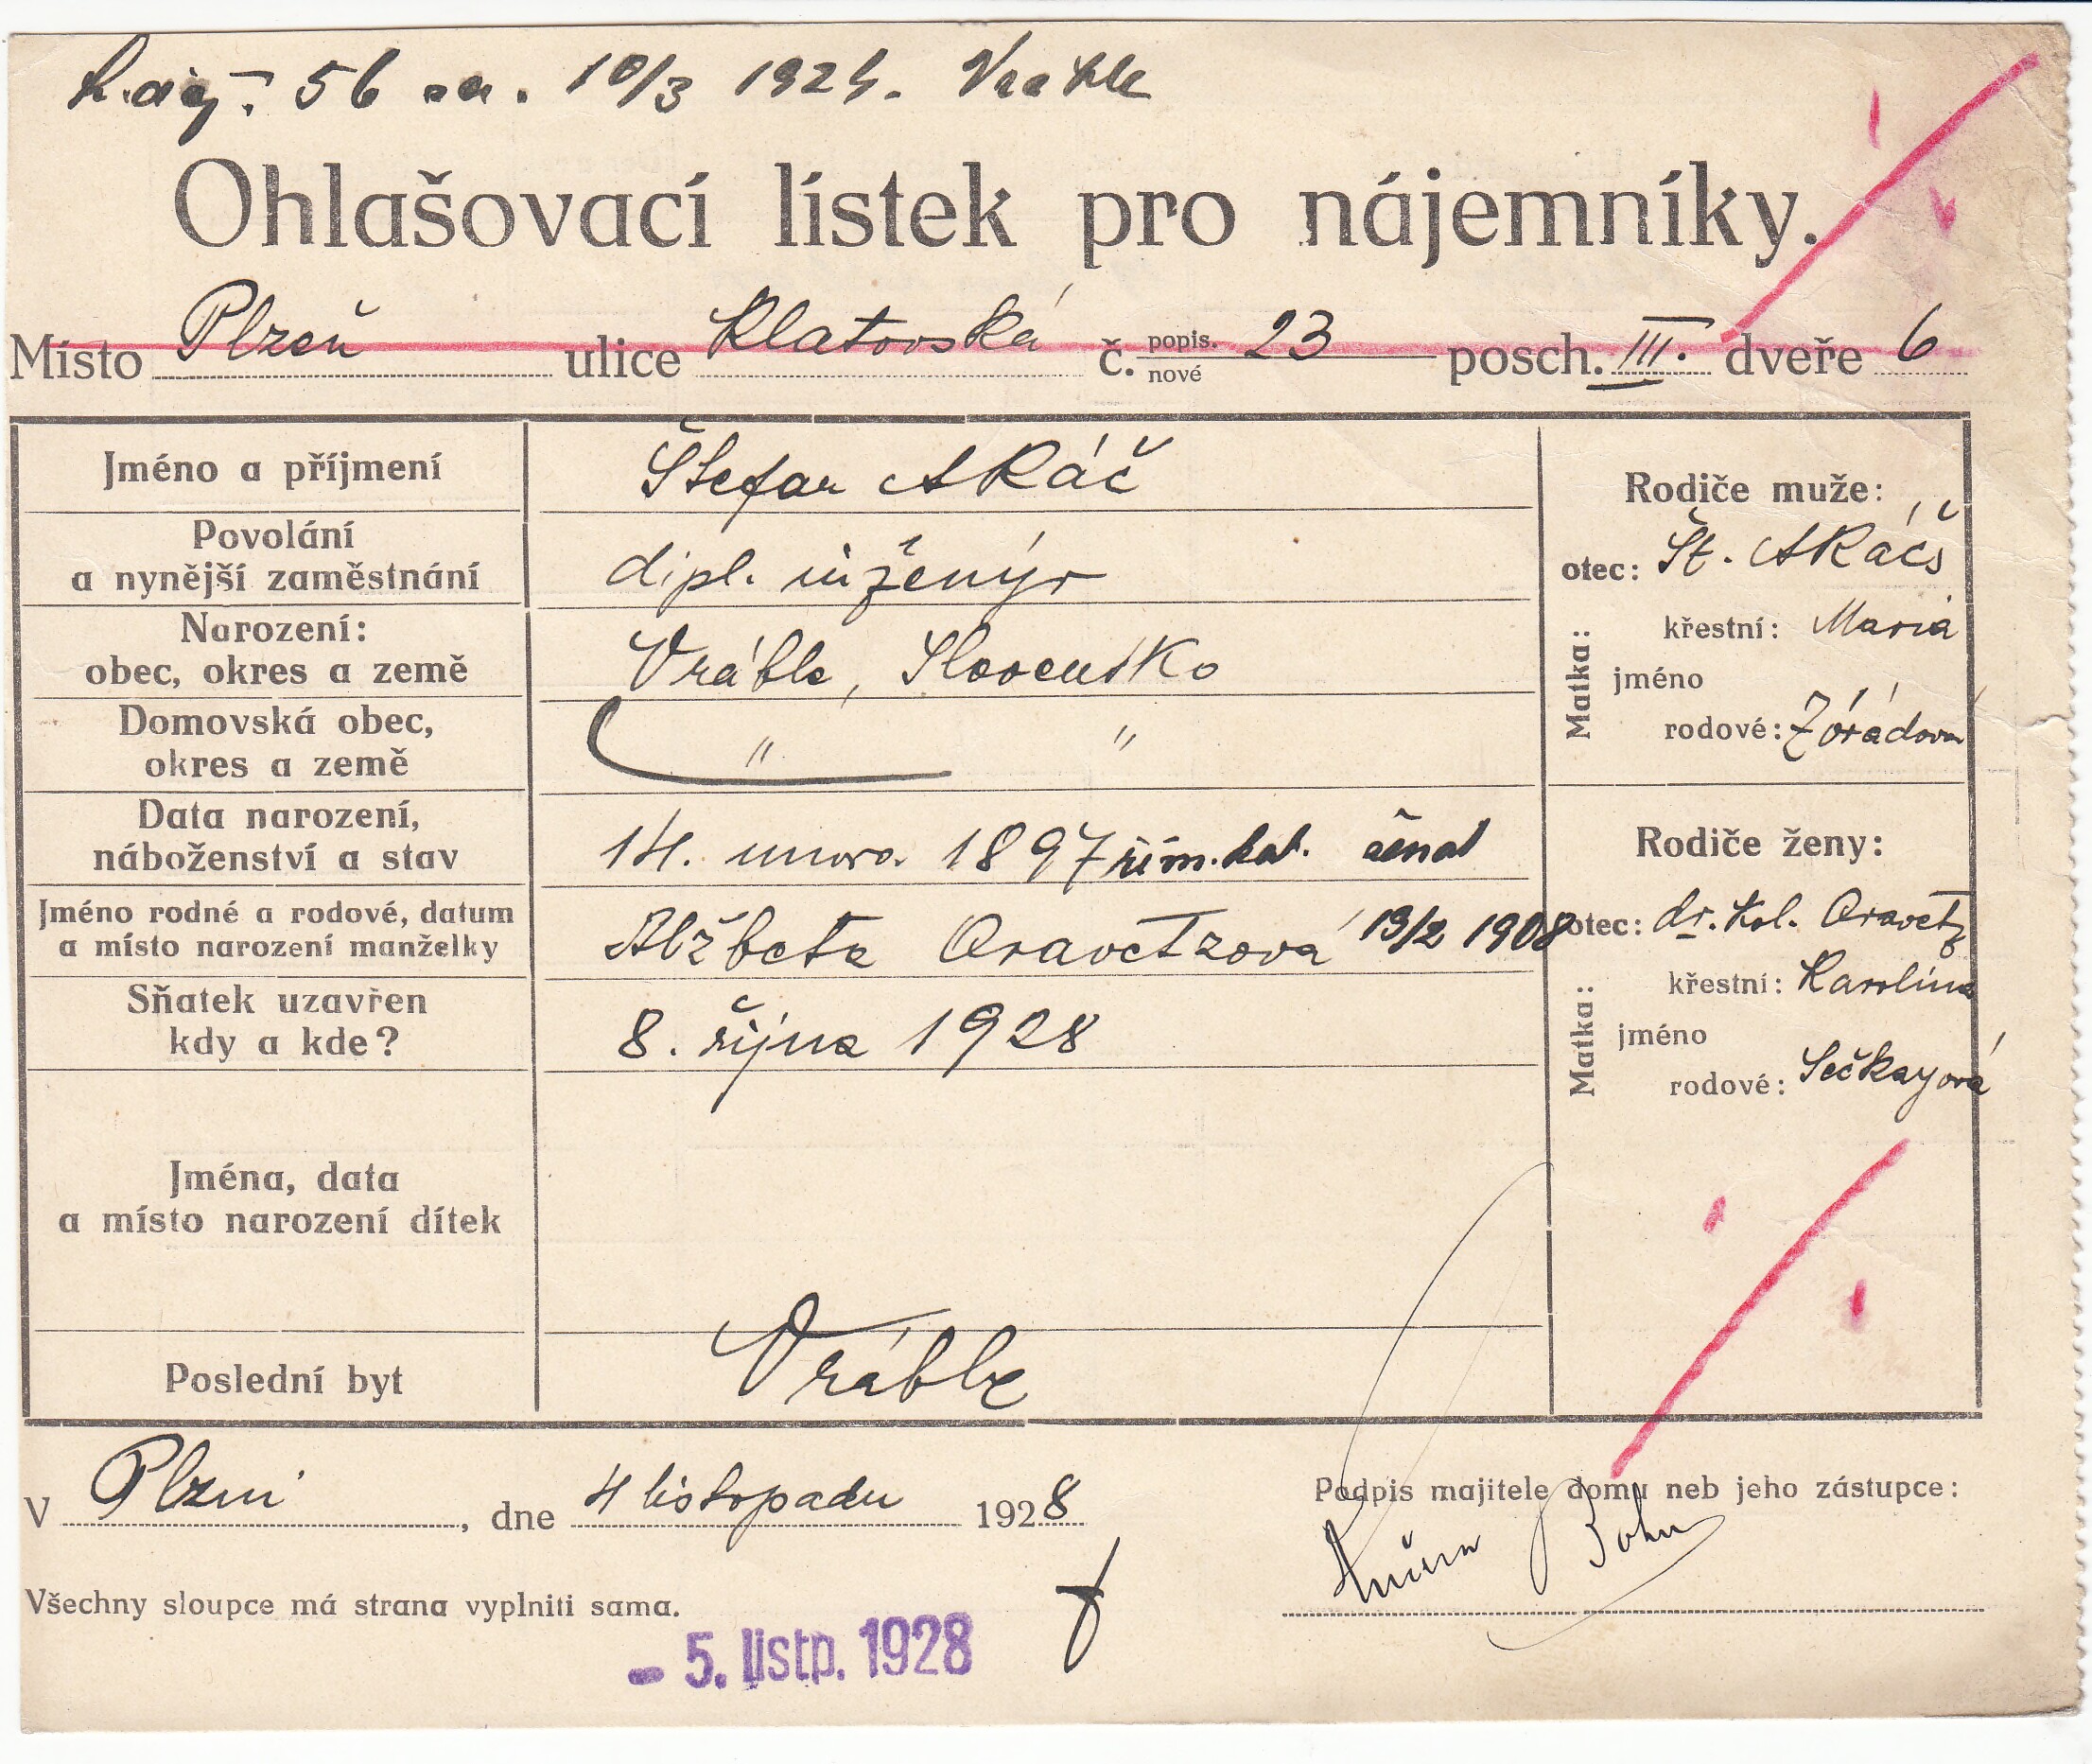 56 10/3 1924. Vráble
Ohlašovací lístek pro nájemníky.
Místo Plzeň ulice Klatovská č. popis. nové 23 posch. III. dveře 6
Jméno a příjmení
Štefan Akáč
Povolání
a nynější zaměstnání
dipl. inženýr
Narození:
obec, okres a země
Vráble, Slovensko
Domovská obec,
okres a země
" "
Data narození,
náboženství a stav
14. února 1897 řím. kat. ženat
Jméno rodné a rodové, datum
a místo narození manželky
Alžbeta Oravetzová 19/2 1908
Sňatek uzavřen
kdy a kde?
8. října 1928
Jména, data
a místo narození dítek
Poslední byt
Vráble
Rodiče muže:
otec: Št. Akáčs
Matka:
křestní: Maria
jméno
rodové: Zórádová
Rodiče ženy:
otec: dr. Kol. Oravetz
Matka:
křestní: Karolina
jméno
rodové: Sečkayová
V Plzni, dne 4 listopadu 1928
Podpis majitele domu neb jeho zástupce:
Všechny sloupce má strana vyplniti sama.
- 5. listp. 1928